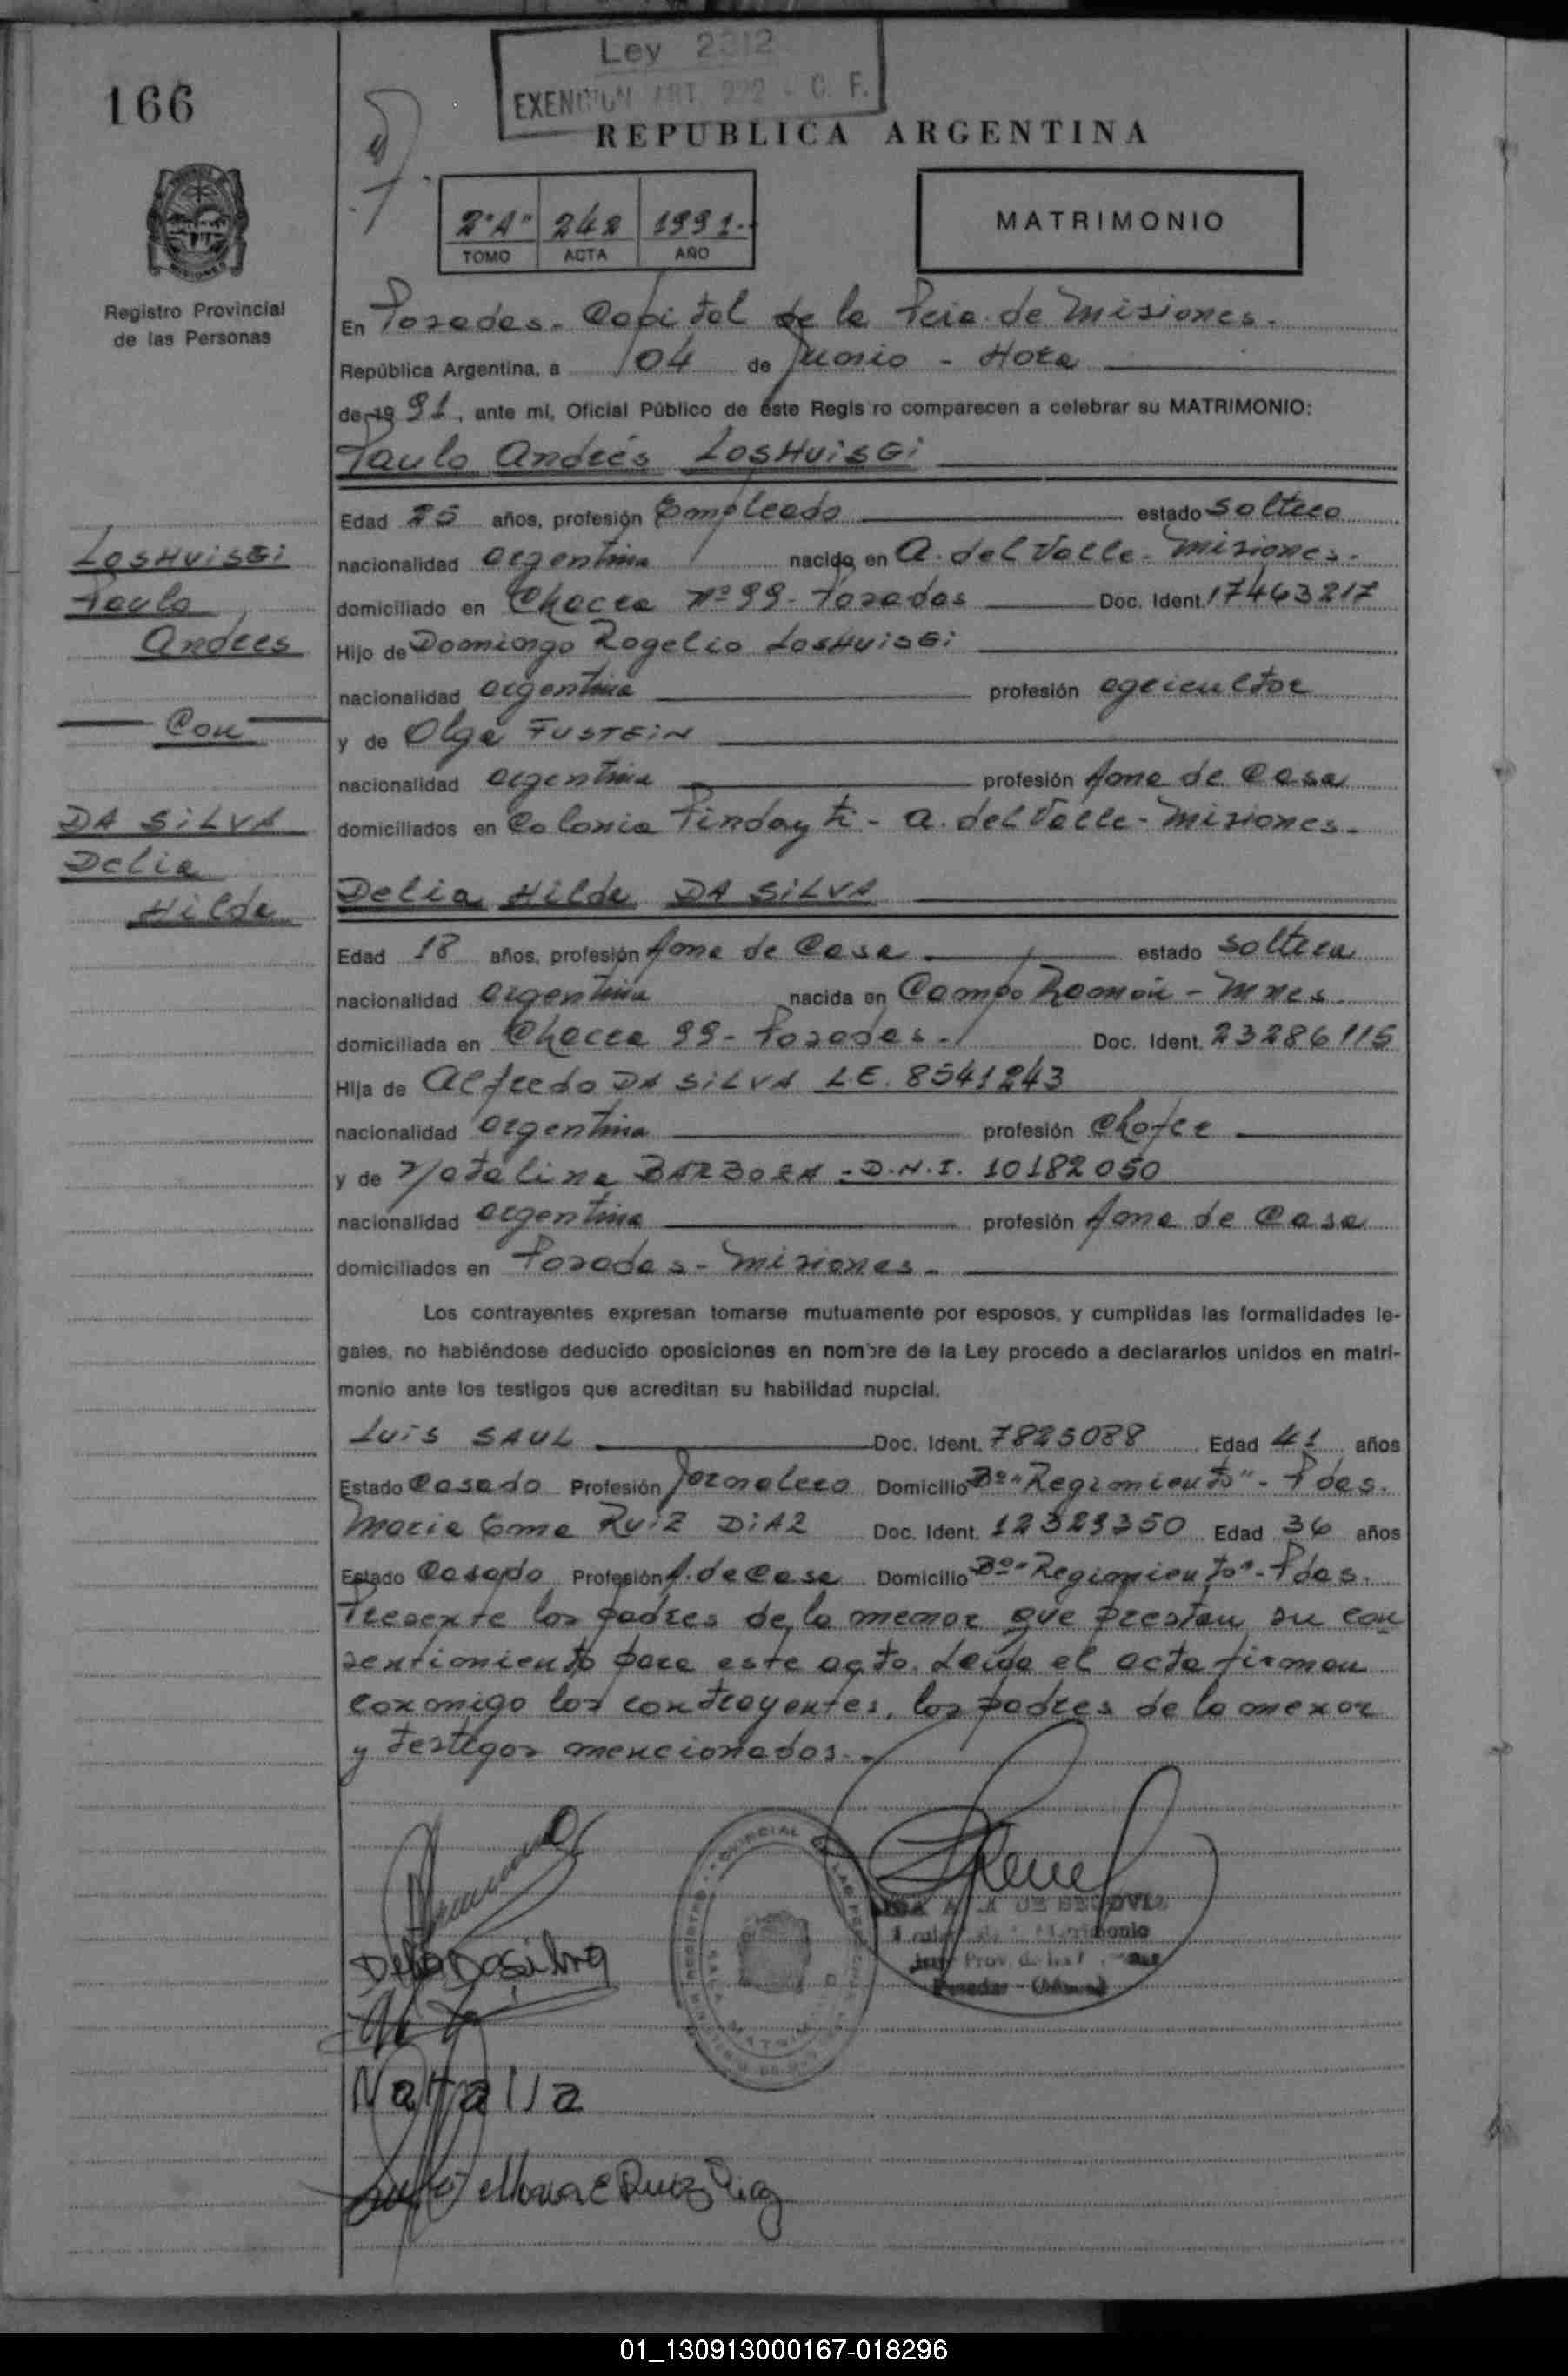 166
Ley 2312
EXENCION ART. 222 - C. F.
REPUBLICA ARGENTINA
2"A" 242 1991.-
TOMO ACTA AÑO
MATRIMONIO
Registro Provincial
de las Personas
En Posadas. Capital de la Pcia. de Misiones.
República Argentina, a 04 de Junio - Hora
de 19 91, ante mi, Oficial Público de éste Regis ro comparecen a celebrar su MATRIMONIO:
Paulo Andrés LOSHUISGi
Edad 25 años, profesión Empleado estado Soltero
nacionalidad argentina nacido en A. del Valle - Misiones.
domiciliado en Chacra Nº 99 - Posadas Doc. Ident. 17463217
Hijo de Domingo Rogelio LOSHUISGi
nacionalidad argentina profesión agricultor
y de Olga FUSTEiN
nacionalidad argentina profesión Ama de Casa
domiciliados en Colonia Pindayti - A. del Valle - Misiones.
LOSHUISGi
Paulo
Andres
Con
DA SiLVA
Delia
Hilda
Delia Hilda DA SiLVA
Edad 18 años, profesión Ama de Casa estado Soltera
nacionalidad argentina nacida en Campo Ramón - Mnes.
domiciliada en Chacra 99 - Posadas. Doc. Ident. 23286115
Hija de Alfredo DA SiLVA L.E. 8541243
nacionalidad argentina profesión Chofer
y de Natalina BARBOSA - D.N.I. 10182050
nacionalidad argentina profesión Ama de Casa
domiciliados en Posadas - Misiones.
Los contrayentes expresan tomarse mutuamente por esposos, y cumplidas las formalidades le-
gales, no habiéndose deducido oposiciones en nombre de la Ley procedo a declararlos unidos en matri-
monio ante los testigos que acreditan su habilidad nupcial.
Luis SAUL Doc. Ident. 7825088 Edad 41 años
Estado Casado Profesión Jornalero Domicilio Bº "Regimiento" - Pdas.
Maria Ema RUiZ DiAZ Doc. Ident. 12329350 Edad 36 años
Estado Casado Profesión A. de Casa Domicilio Bº "Regimiento" - Pdas.
Presente los padres de la menor que prestan su con
sentimiento para este acto. Leída el acta firman
conmigo los contrayentes, los padres de la menor
y testigos mencionados.-
DE SEGOVIA
Matrimonio
Prov. de las
Posadas - (Mnes)
Delia Dasilva
Natalia
Maria E Ruiz Diaz
01_130913000167-018296